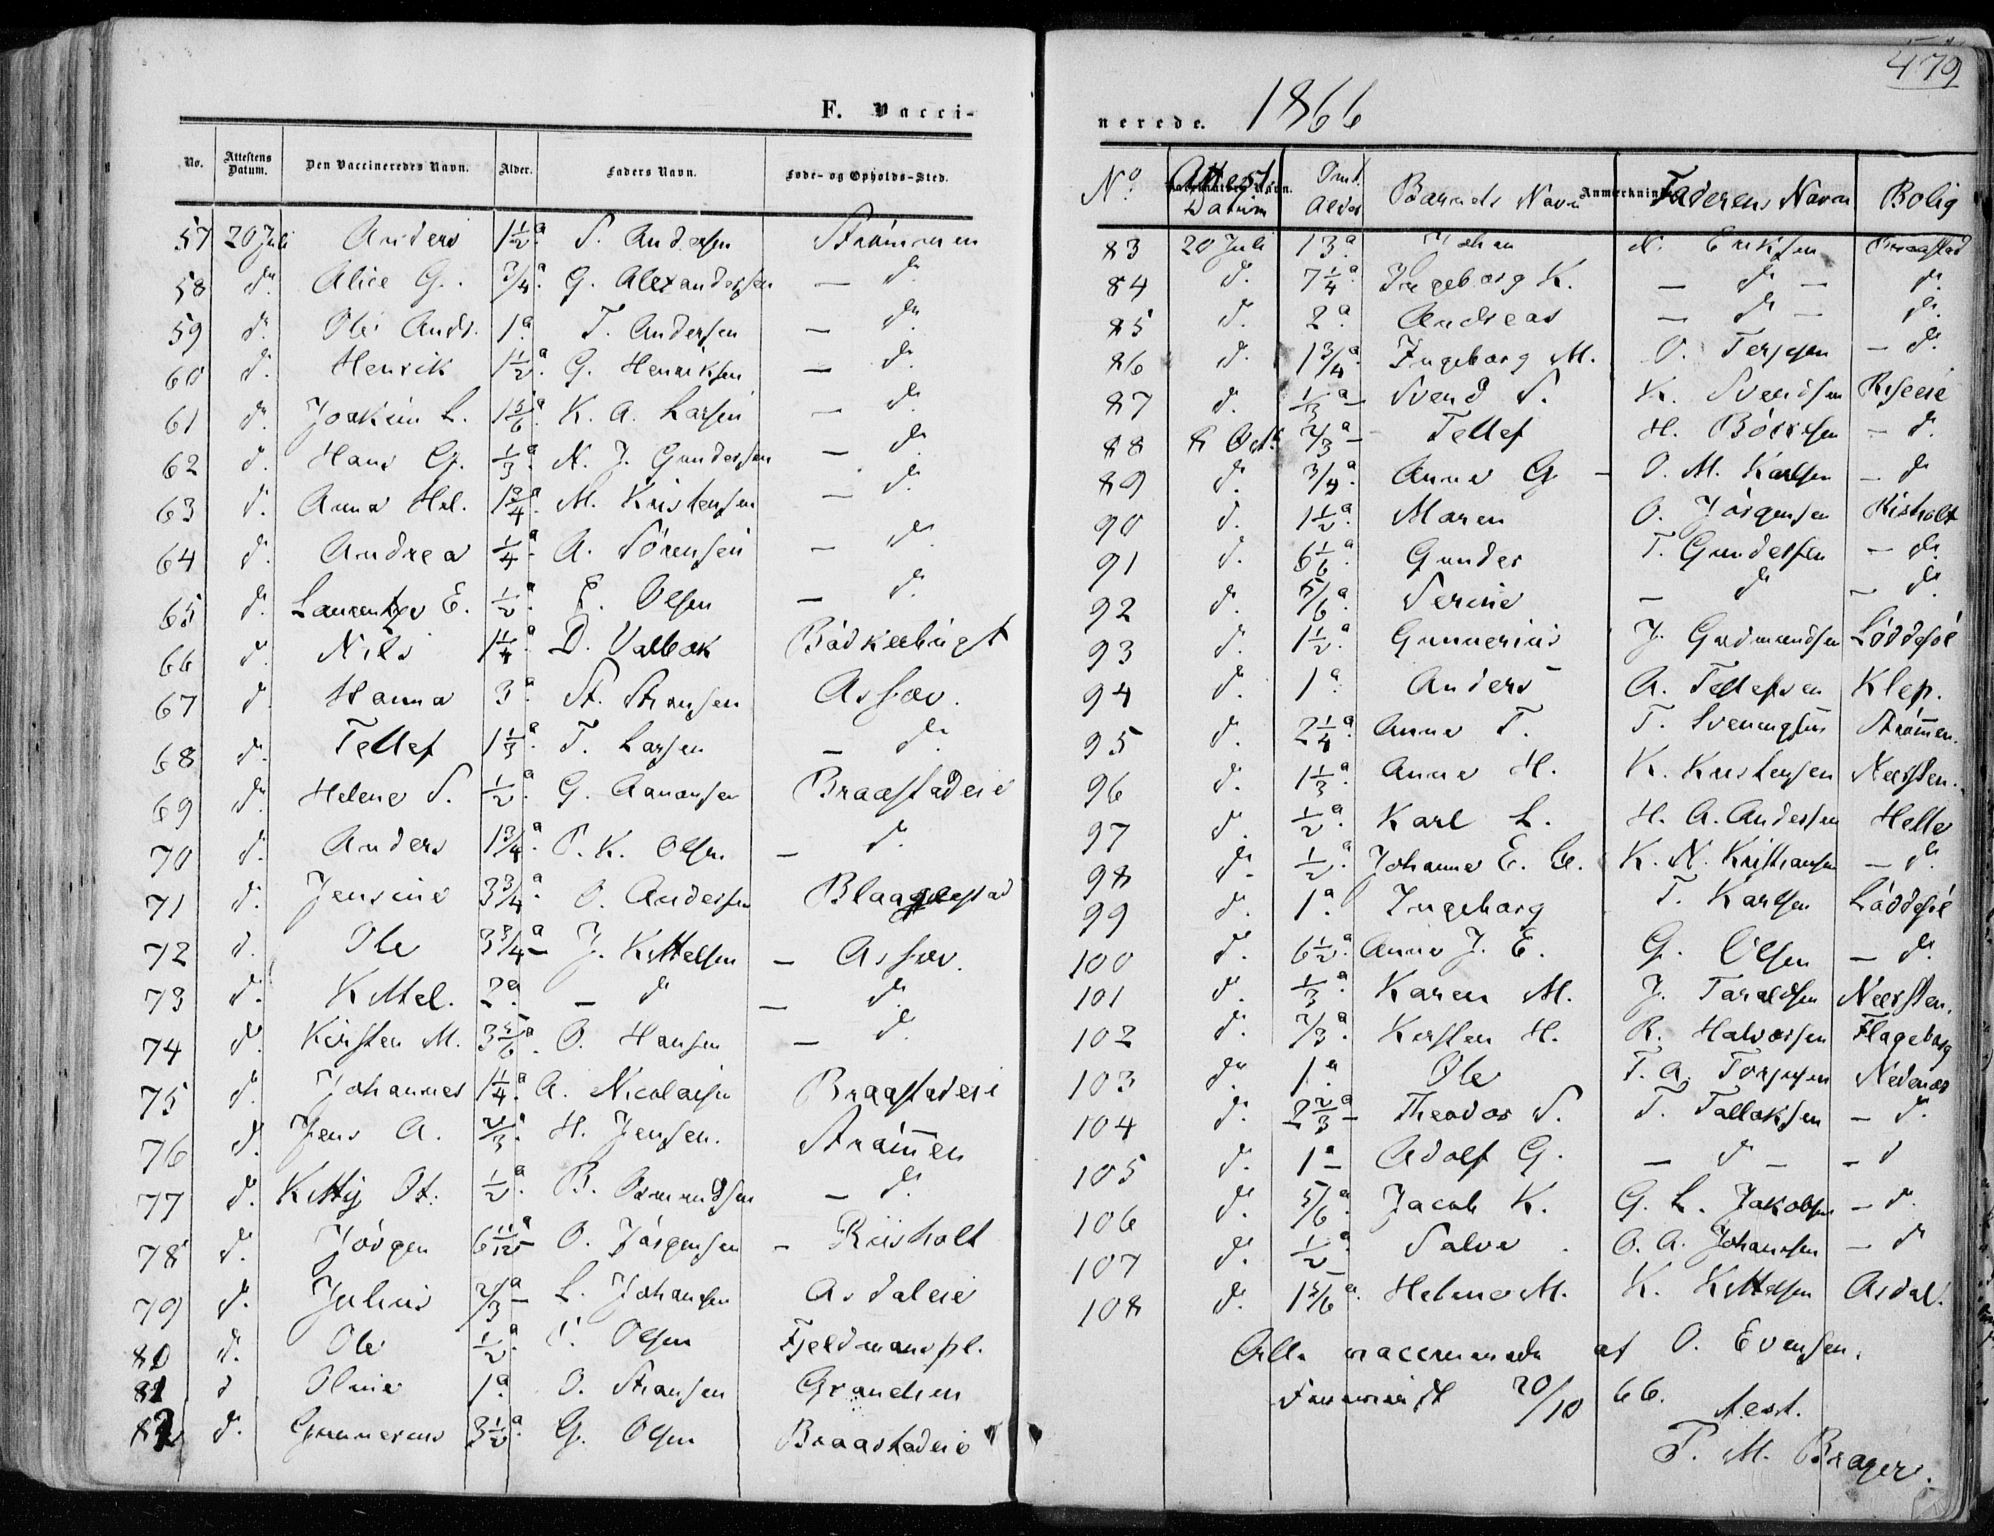 479
F. Vacci-
nerede. 1866
No. Attestens Datum. Den Vaccineredes Navn. Alder. Faders Navn. Føde- og Opholds-Sted.
57 20 Juli Anders 1 1/2 a. S. Andersen Strømmen
58 do. Alice G. 3/4 a. G. Alexandersen — do.
59 do. Ole Ands. 1 a. T. Andersen — do.
60 do. Henrik 1 1/2 a. G. Henriksen — do.
61 do. Joakim L. 1 5/6 a. K. A. Larsen — do.
62 do. Hans G. 1/3 a. N. J. Gundersen — do.
63 do. Anna Hel. 1 3/4 a. M. Kristensen — do.
64 do. Andrea 1/4 a. A. Sørensen — do.
65 do. E. 1/2 a. Olsen — do.
66 do. Nils 1 1/4 a. D. Valbok Bødkerbugt
67 do. Hanna 3 a. St. Stransen Assæv.
68 do. Tellef 1 1/3 a. T. Larsen — do.
69 do. Helene S. 1/2 a. G. Aanonsen Braastadeie
70 do. Anders 1 3/4 a. P. K. Olsen — do.
71 do. Jensine 3 3/4 a. O. Andersen
72 do. Ole 3 3/4 a. J. Kittelsen — Assæv.
73 do. Kittel. 2 a. — do — do.
74 do. Kirsten M. 3 5/6 a. O. Hansen — do.
75 do. Johannes 1 1/4 a. A. Nicolaisen Braastadeie
76 do. Jens A. 2/3 a. H. Jensen. Strømmen
77 do. Kitty Ot. 1/2 a. B. Osmundsen — do.
78 do. Jörgen 6 1/12 a. O. Jörgensen — Riisholt
79 do. Julius 2/3 a. L. Johansen Asdaleie
80 do. Ole 1/2 a. Olsen Fjeldmanspl.
81 do Oline 1 a. O. Stransen
82 do. Gunnerius 3 1/2 a. G. Olsen Braastadeie
No. Attest. Datum Omt. Alder Barnets Navn Anmerkning Faderens Navn Bolig
83 20 Juli 13 a. Johan N. Eriksen Braastad
84 do. 7 1/4 a. Ingeborg K. — do — do.
85 do. 2 a. Andreas — do — do.
86 do. 1 3/4 a. Ingeborg M. O. Terjesen — do.
87 do. 1/3 a. Svend S. K. Svendsen Riseeie
88 8 Oct. 2/3 a. Tellef H. — do.
89 do. 3/4 a. Anne G — O. M. Karlsen — do
90 do. 1 1/2 a. Maren O. Jörgensen Risholt
91 do. 6 1/6 a. Gunder T. Gundersen — do.
92 do. 5/6 a. Serine — do — do.
93 do. 1 1/2 a. Gunnerius J. Gudmundsen Løddesøl
94 do. 1 a. Anders A. Tellefsen Klep.
95 do. 2 1/4 a. Anne T. T. Svenningsen Strømmen.
96 do. 1 1/3 a. Anne H. K. Kristensen Neersten.
97 do. 1/2 a. Karl L. H. A. Andersen Helle
98 do. 1/2 a. Johanne E. K. N. Kristiansen — do.
99 do. 1 a. Ingeborg T. Karlsen Løddesøl
100 do. 6 1/2 a. Anne J. E. G. Olsen — do.
101 do. 1/3 a. Karen M. J. Taraldsen Neersten.
102 do. 2/3 a. Kirsten H. R. Halvorsen Flageborg
103 do. 1 a. Ole T. A. Terjesen Nedenæs
104 do. 2 2/3 a. Theodor S. T. Tallaksen — do.
105 do. 1 a Adolf G. — do — — do
106 do. 5/6 a. Jacob K. G. L. Jakobsen — do.
107 do. 1/2 a. Salve O. A. Johansen — do
108 do. 1 5/6 a. Helene M. K. Kittelsen Asdal.
Alle vaccinerede af O. Evensen.
20/10 66. test.
T. M. Brager.